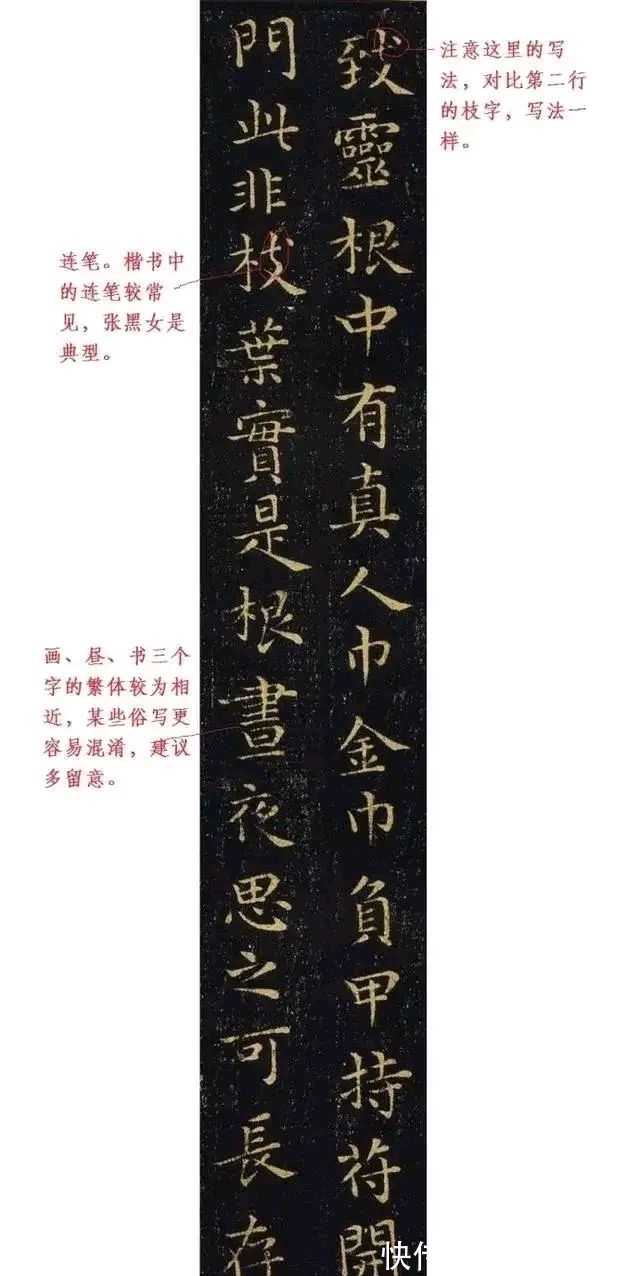 致靈根中有真人巾金巾負甲持符開
門此非枝葉實是根晝夜思之可長存
注意这里的写
法，对比第二行
的枝字，写法一
样。
连笔。楷书中
的连笔较常
见，张黑女是
典型。
画、昼、书三个
字的繁体较为相
近，某些俗写更
容易混淆，建议
多留意。